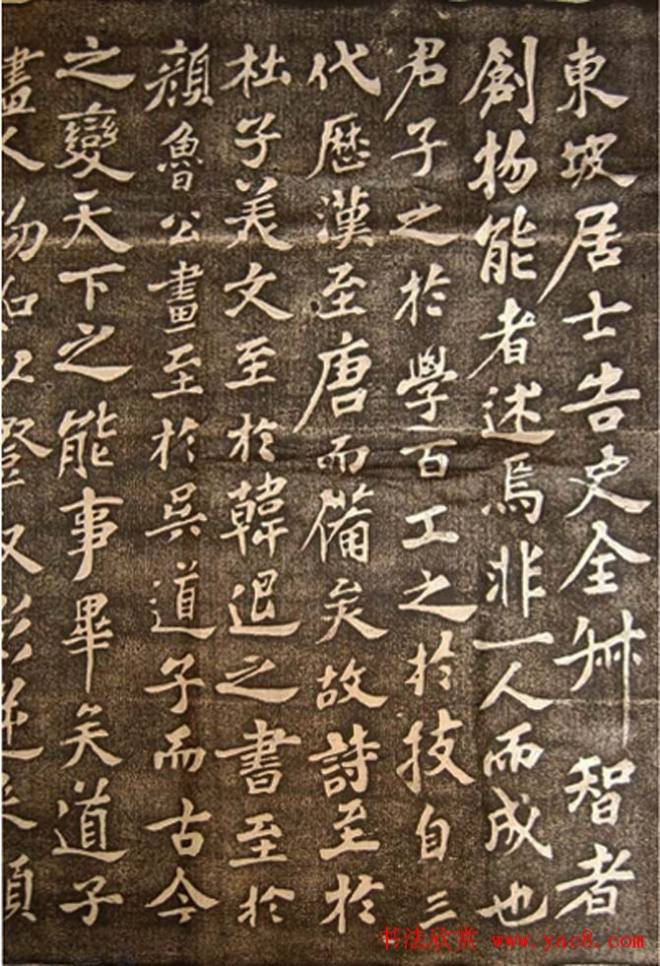 東坡居士告史全叔智者
創物能者述焉非一人而成也
君子之於學百工之於技自三
代歷漢至唐而備矣故詩至於
杜子美文至於韓退之書至於
顏魯公畫至於吳道子而古今
之變天下之能事畢矣道子
畫人物如以燈取影逆來順
书法欣赏 www.yac8.com